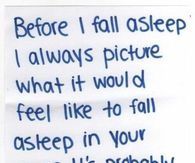 Before I fall asleep
I always picture
what it would
feel like to fall
asleep in your
It's probably